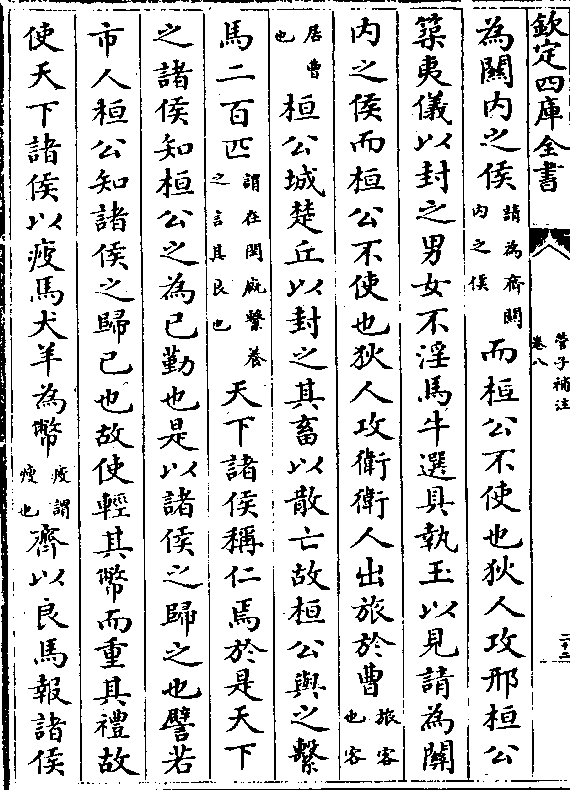 欽定四庫全書
管子補注
卷八
二十二
為關内之侯請為齊關内之侯而桓公不使也狄人攻邢桓公
築夷儀以封之男女不淫馬牛選具執玉以見請為關
内之侯而桓公不使也狄人攻衛衛人出旅於曹旅客也客
居曹也桓公城楚丘以封之其畜以散亡故桓公與之繫
馬二百匹謂在閑廐繫養之言其良也天下諸侯稱仁焉於是天下
之諸侯知桓公之為已勤也是以諸侯之歸之也譬若
市人桓公知諸侯之歸已也故使輕其幣而重其禮故
使天下諸侯以疲馬犬羊為幣疲謂瘦也齊以良馬報諸侯